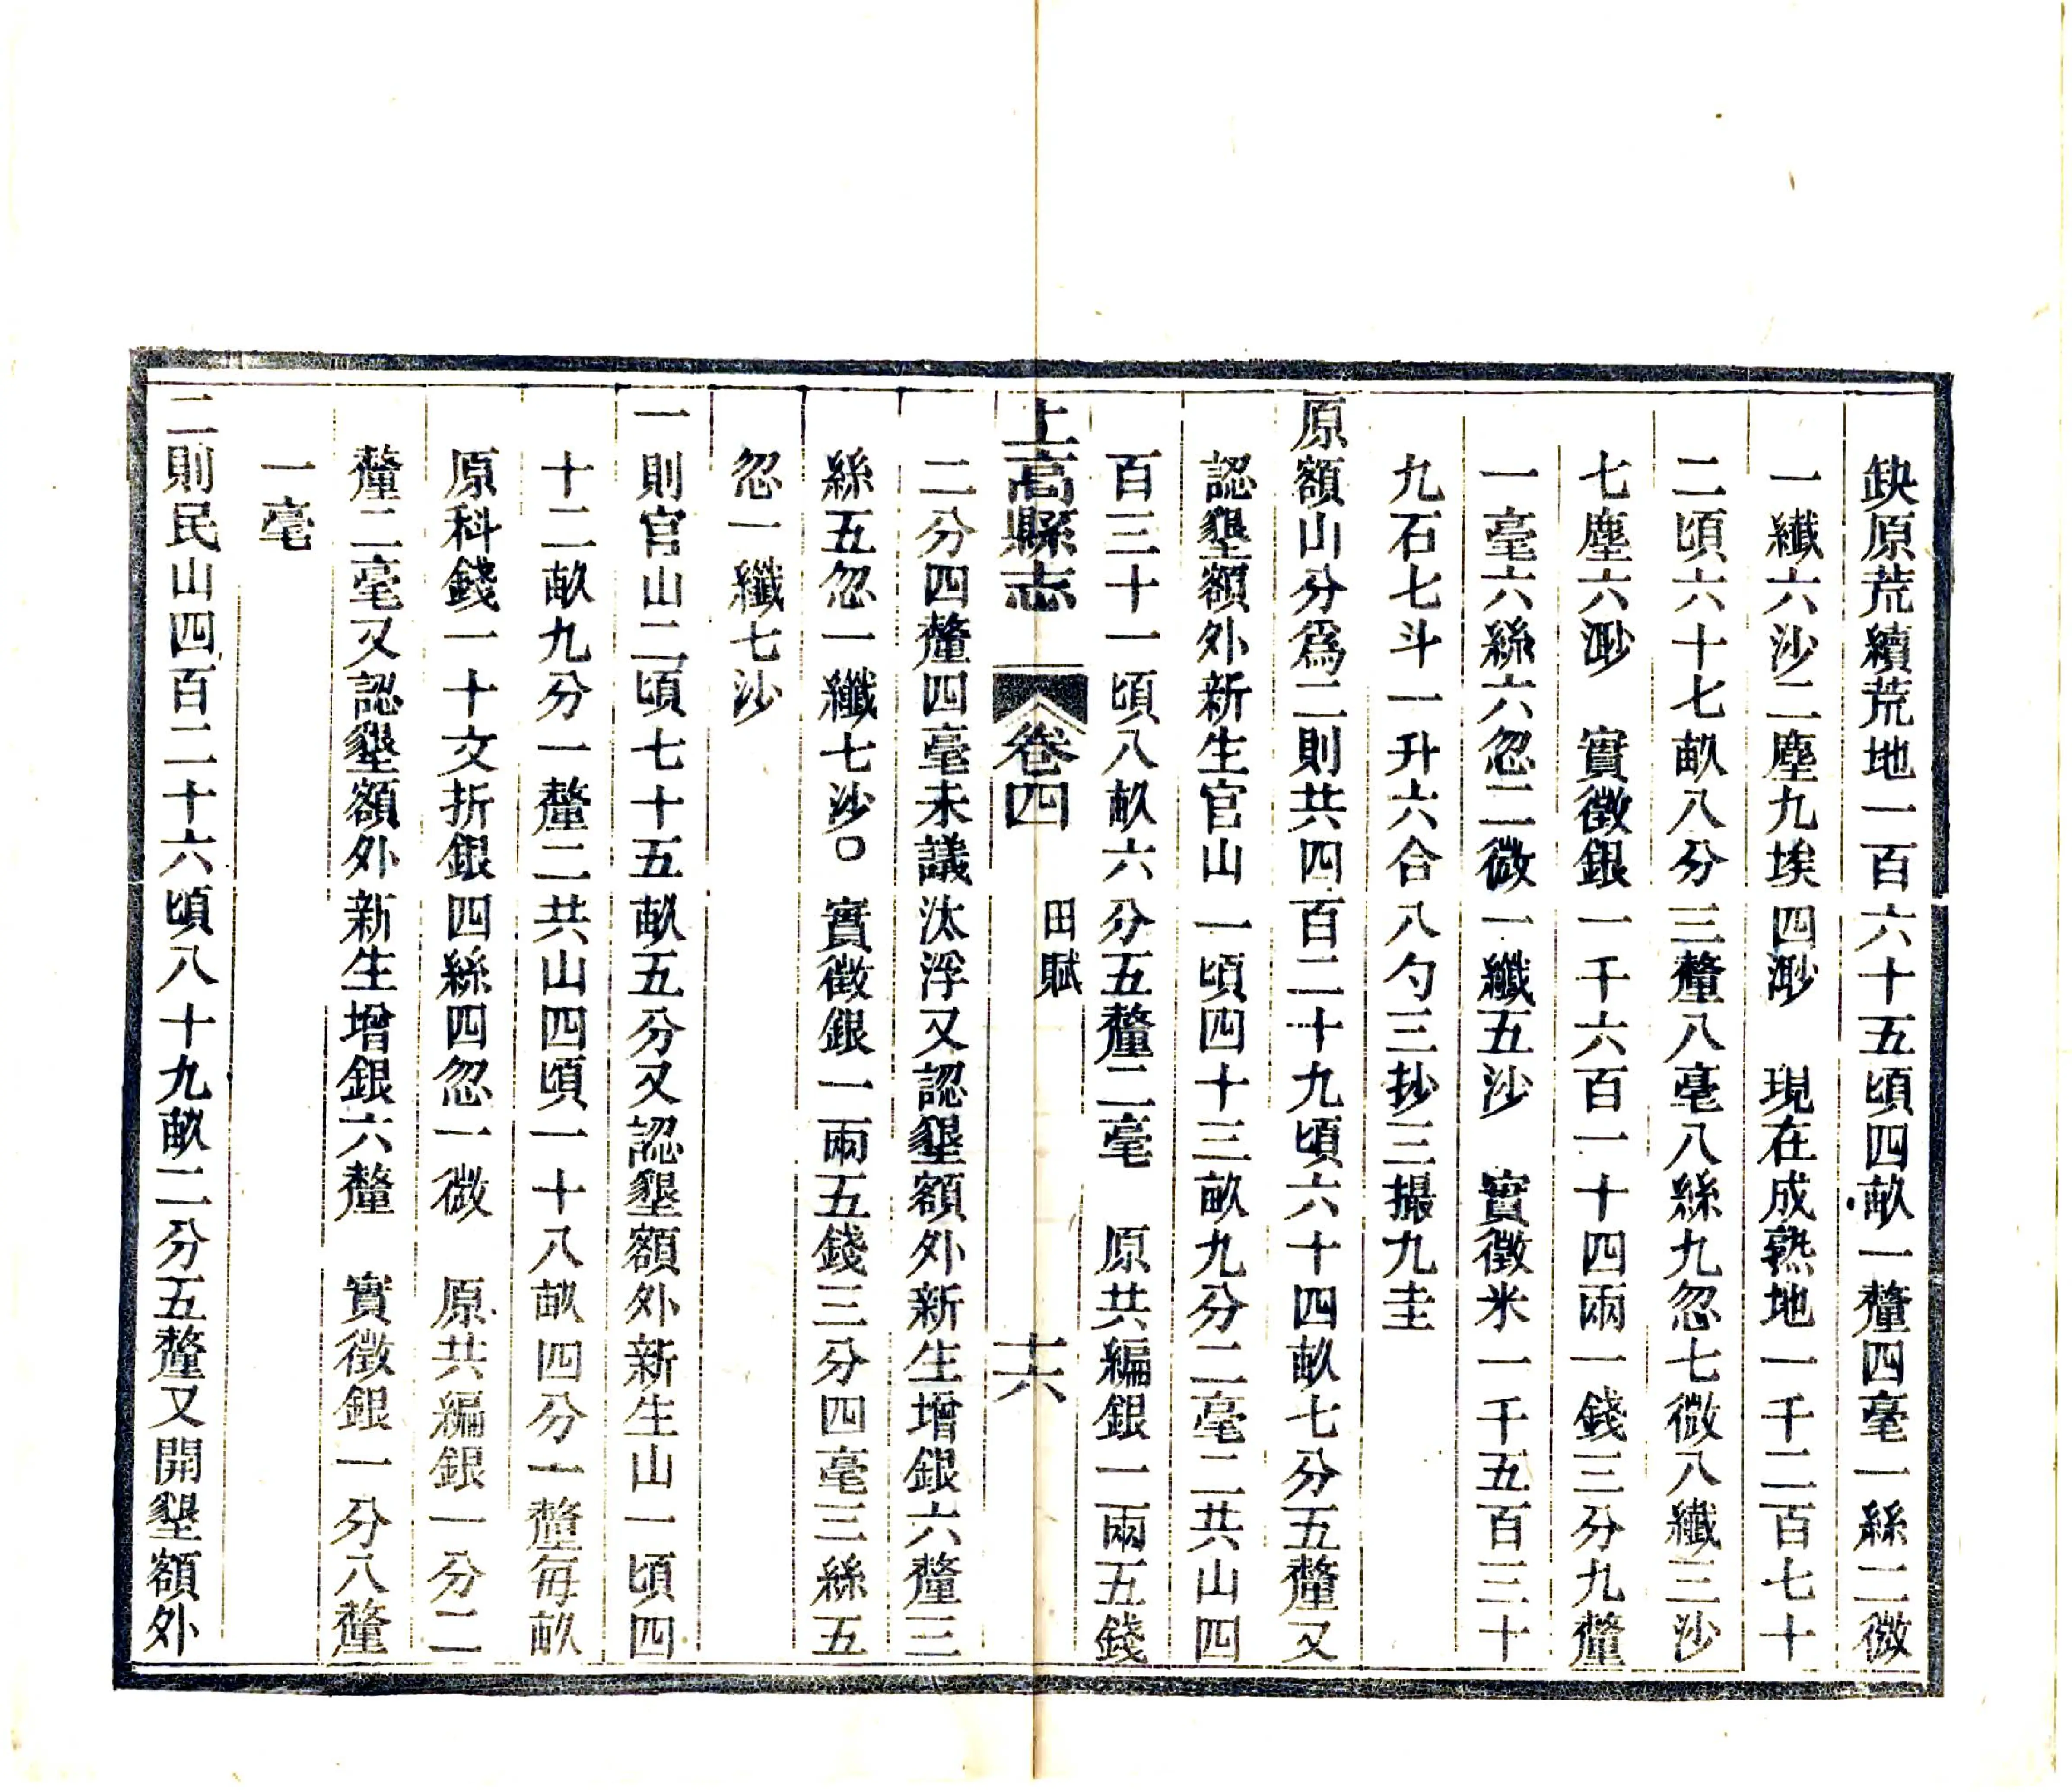 缺原荒續荒地一百六十五頃四畝一釐四毫一絲二微
一纖六沙二塵九埃四渺　現在成熟地一千二百七十
二頃六十七畝八分三釐八毫八絲九忽七微八纖三沙
七塵六渺　實徵銀一千六百一十四兩一錢三分九釐
一毫六絲六忽二微一纖五沙　實徵米一千五百三十
九石七斗一升六合八勺三抄三撮九圭
原額山分爲二則共四百二十九頃六十四畝七分五釐又
認墾額外新生官山一頃四十三畝九分二毫二共山四
百三十一頃八畝六分五釐二毫　原共編銀一兩五錢
上高縣志　卷四　田賦　十六
二分四釐四毫未議汰浮又認墾額外新生增銀六釐三
絲五忽一纖七沙○實徵銀一兩五錢三分四毫三絲五
忽一纖七沙
一則官山二頃七十五畝五分又認墾額外新生山一頃四
十二畝九分一釐二共山四頃一十八畝四分一釐每畝
原科錢一十文折銀四絲四忽一微　原共編銀一分二
釐二毫又認墾額外新生增銀六釐　實徵銀一分八釐
一毫
二則民山四百二十六頃八十九畝二分五釐又開墾額外